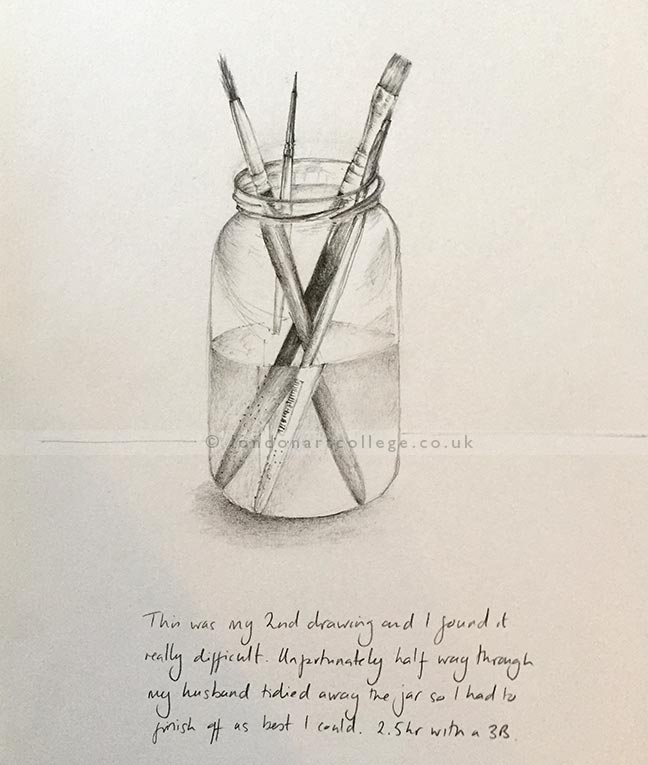 © londonartcollege.co.uk
This was my 2nd drawing and I found it
really difficult. Unfortunately half way through
my husband tidied away the jar so I had to
finish off as best I could. 2.5hr with a 3B.